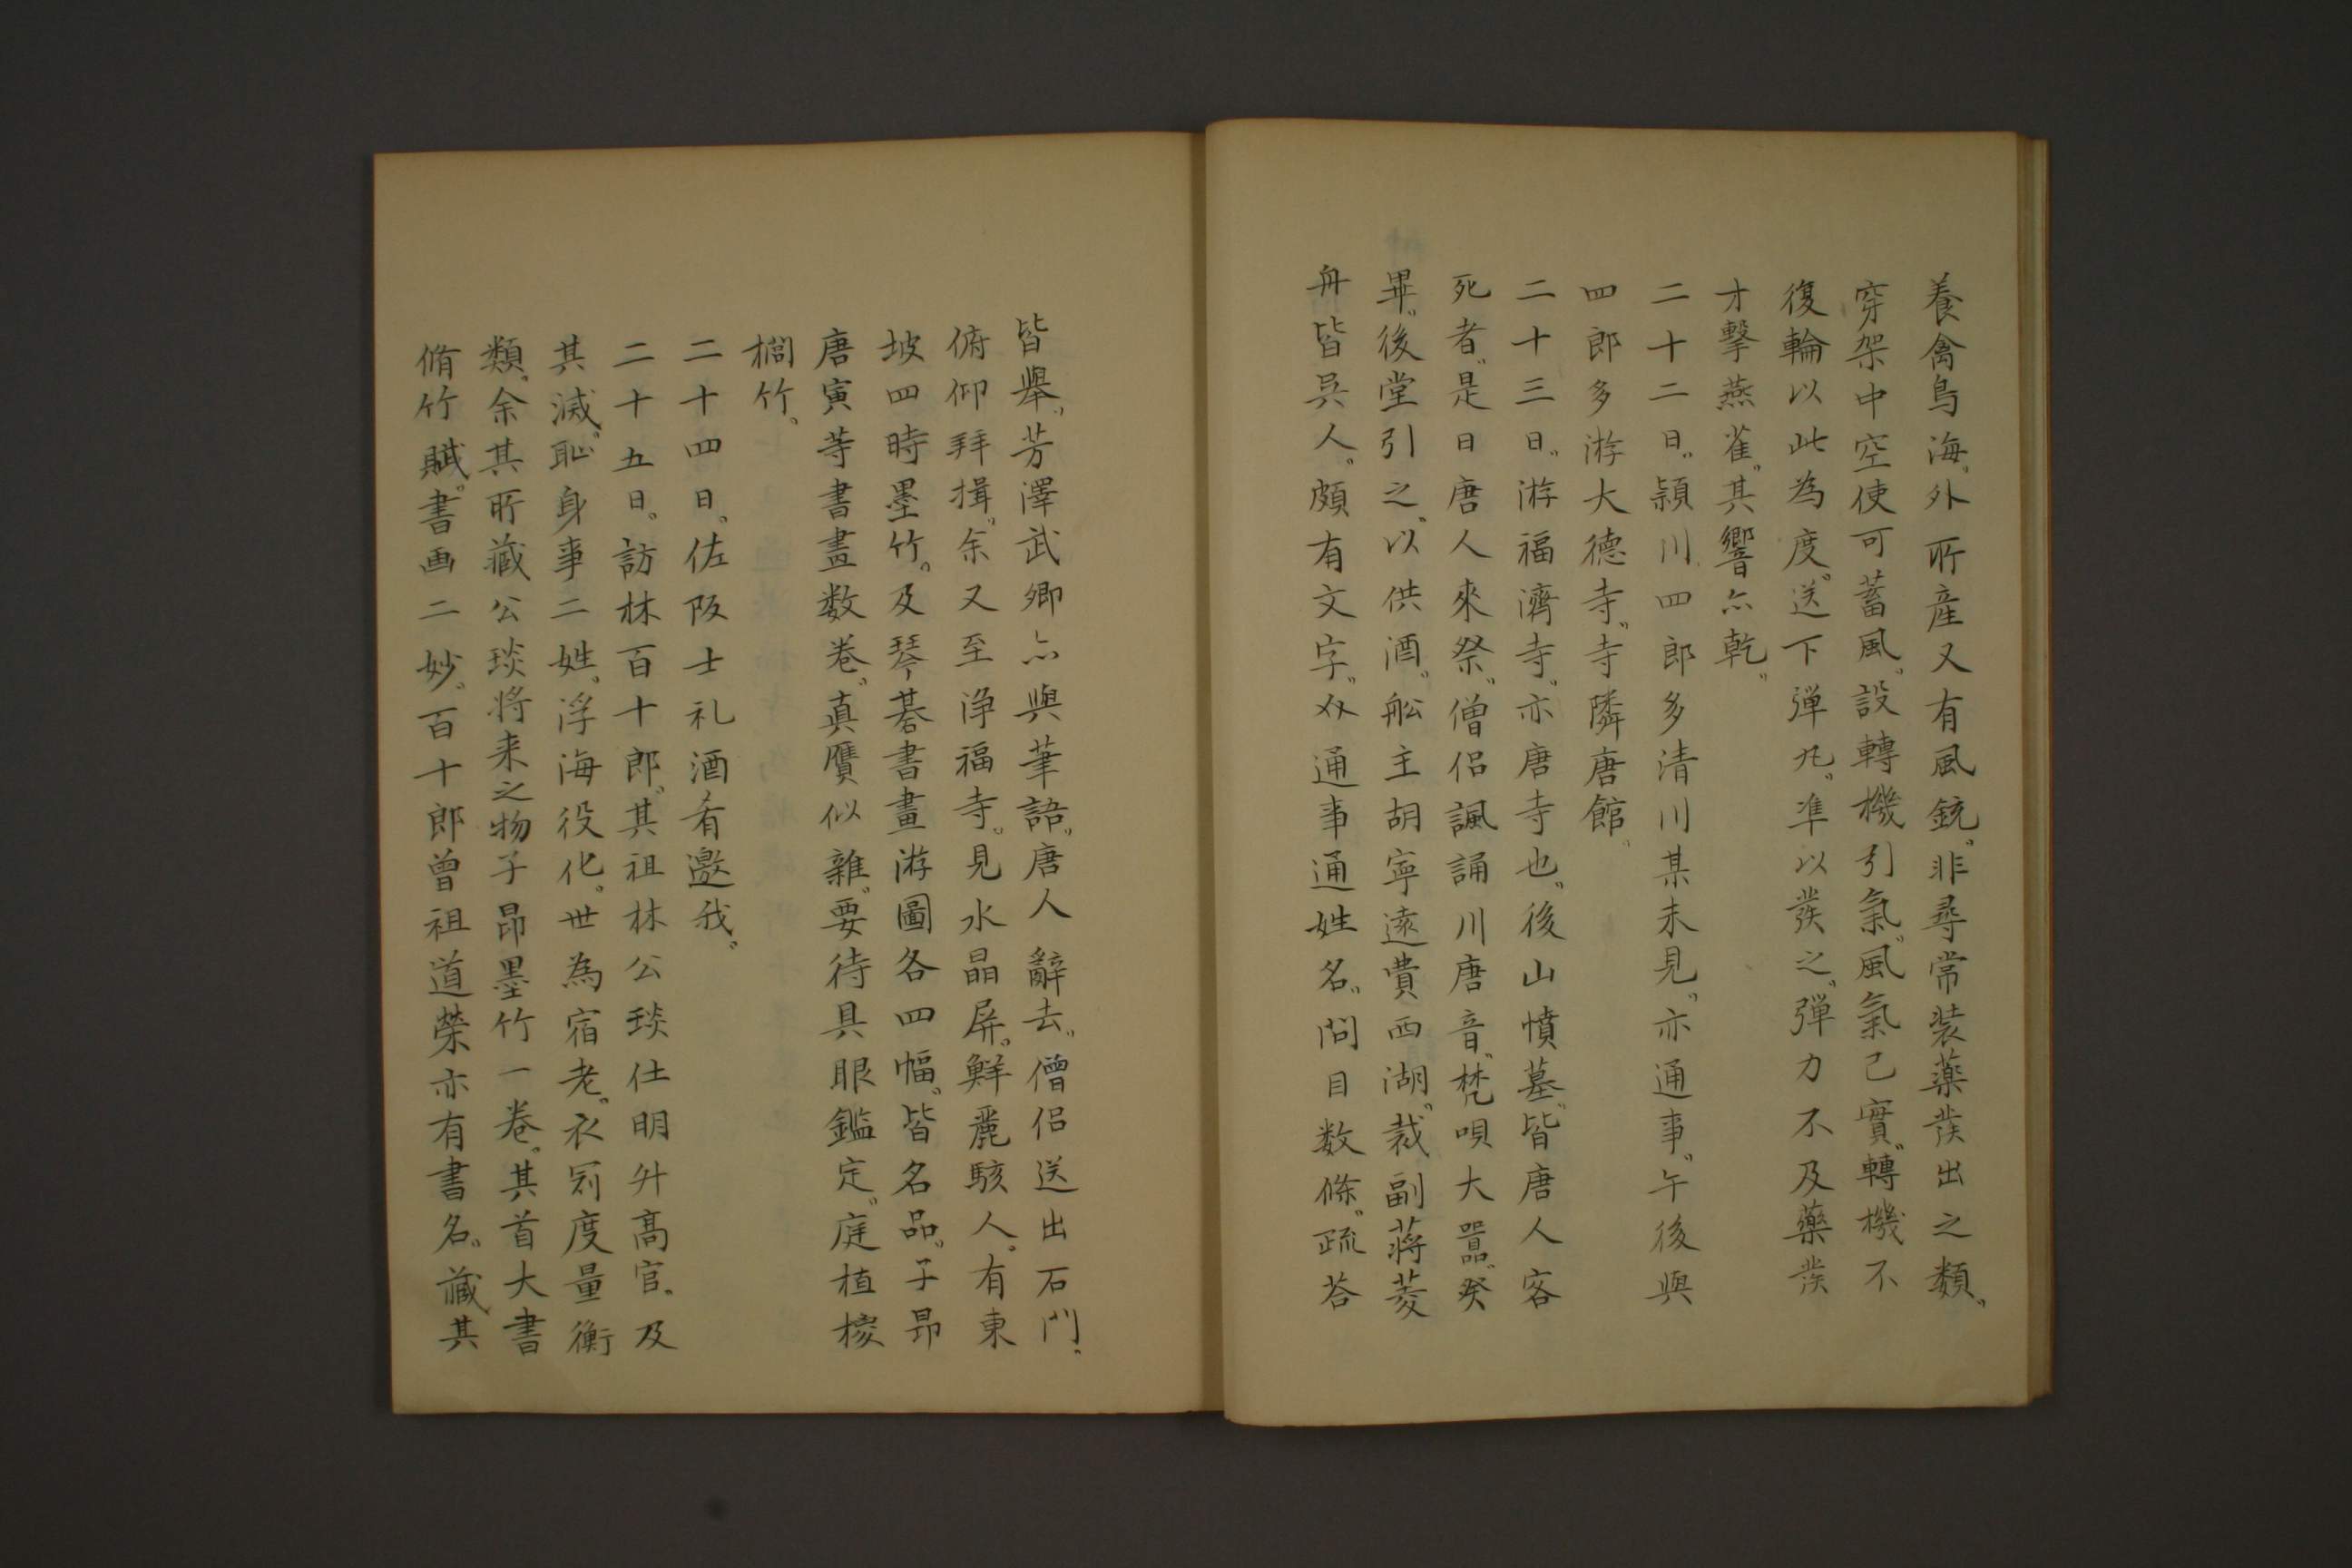 養禽鳥海外所産又有風銃非尋常装藥發出之類
穿架中空使可蓄風設轉機引氣風氣已實轉機不
復輪以此為度送下弾丸準以發之弾力不及藥發
才擊燕雀其響亦乾
二十二日穎川四郎多清川某未見亦通事午後與
四郎多游大德寺寺隣唐館
二十三日游福濟寺亦唐寺也後山墳墓皆唐人客
死者是日唐人來祭僧侶諷誦川唐音梵唄大囂祭
畢後堂引之以供酒舩主胡寧遠費西湖裁副蔣菱
舟皆吳人頗有文字通事通姓名問目数條疏荅
皆舉芳澤武卿亦與筆語唐人辭去僧侶送出石門
俯仰拜揖余又至浄福寺見水晶屏鮮麗駭人有東
坡四時墨竹及琴碁書畫游圖各四幅皆名品子昻
唐寅等書畫数卷真贋似雜要待具眼鑑定庭植椶
櫚竹
二十四日佐阪士礼酒肴邀我
二十五日訪林百十郎其祖林公琰仕明升髙官及
其滅恥身事二姓浮海役化世為宿老衣冠度量衡
類余其所藏公琰将来之物子昻墨竹一卷其首大書
脩竹賦書画二妙百十郎曾祖道榮亦有書名藏其